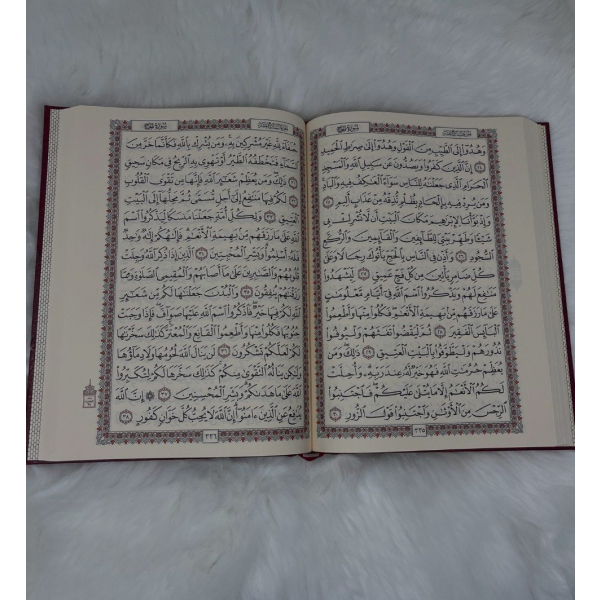 الجزء السابع عشر
سورة الحج
وَهُدُوٓا۟ إِلَى ٱلطَّيِّبِ مِنَ ٱلْقَوْلِ وَهُدُوٓا۟ إِلَىٰ صِرَٰطِ ٱلْحَمِيدِ
٢٤ إِنَّ ٱلَّذِينَ كَفَرُوا۟ وَيَصُدُّونَ عَن سَبِيلِ ٱللَّهِ وَٱلْمَسْجِدِ
ٱلْحَرَامِ ٱلَّذِى جَعَلْنَٰهُ لِلنَّاسِ سَوَآءً ٱلْعَٰكِفُ فِيهِ وَٱلْبَادِ
وَمَن يُرِدْ فِيهِ بِإِلْحَادٍۭ بِظُلْمٍ نُّذِقْهُ مِنْ عَذَابٍ أَلِيمٍ
٢٥ وَإِذْ بَوَّأْنَا لِإِبْرَٰهِيمَ مَكَانَ ٱلْبَيْتِ أَن لَّا تُشْرِكْ بِى
شَيْـًٔا وَطَهِّرْ بَيْتِىَ لِلطَّآئِفِينَ وَٱلْقَآئِمِينَ وَٱلرُّكَّعِ
ٱلسُّجُودِ ٢٦ وَأَذِّن فِى ٱلنَّاسِ بِٱلْحَجِّ يَأْتُوكَ رِجَالًا وَعَلَىٰ
كُلِّ ضَامِرٍ يَأْتِينَ مِن كُلِّ فَجٍّ عَمِيقٍ ٢٧ لِّيَشْهَدُوا۟
مَنَٰفِعَ لَهُمْ وَيَذْكُرُوا۟ ٱسْمَ ٱللَّهِ فِىٓ أَيَّامٍ مَّعْلُومَٰتٍ
عَلَىٰ مَا رَزَقَهُم مِّنۢ بَهِيمَةِ ٱلْأَنْعَٰمِ فَكُلُوا۟ مِنْهَا وَأَطْعِمُوا۟
ٱلْبَآئِسَ ٱلْفَقِيرَ ٢٨ ثُمَّ لْيَقْضُوا۟ تَفَثَهُمْ وَلْيُوفُوا۟
نُذُورَهُمْ وَلْيَطَّوَّفُوا۟ بِٱلْبَيْتِ ٱلْعَتِيقِ ٢٩ ذَٰلِكَ وَمَن
يُعَظِّمْ حُرُمَٰتِ ٱللَّهِ فَهُوَ خَيْرٌ لَّهُۥ عِندَ رَبِّهِۦ وَأُحِلَّتْ
لَكُمُ ٱلْأَنْعَٰمُ إِلَّا مَا يُتْلَىٰ عَلَيْكُمْ فَٱجْتَنِبُوا۟
ٱلرِّجْسَ مِنَ ٱلْأَوْثَٰنِ وَٱجْتَنِبُوا۟ قَوْلَ ٱلزُّورِ ٣٠
٣٣٥
الجزء السابع عشر
سورة الحج
حُنَفَآءَ لِلَّهِ غَيْرَ مُشْرِكِينَ بِهِۦ وَمَن يُشْرِكْ بِٱللَّهِ فَكَأَنَّمَا خَرَّ مِنَ
ٱلسَّمَآءِ فَتَخْطَفُهُ ٱلطَّيْرُ أَوْ تَهْوِى بِهِ ٱلرِّيحُ فِى مَكَانٍ سَحِيقٍ
٣١ ذَٰلِكَ وَمَن يُعَظِّمْ شَعَٰٓئِرَ ٱللَّهِ فَإِنَّهَا مِن تَقْوَى ٱلْقُلُوبِ
٣٢ لَكُمْ فِيهَا مَنَٰفِعُ إِلَىٰٓ أَجَلٍ مُّسَمًّى ثُمَّ مَحِلُّهَآ إِلَى ٱلْبَيْتِ
ٱلْعَتِيقِ ٣٣ وَلِكُلِّ أُمَّةٍ جَعَلْنَا مَنسَكًا لِّيَذْكُرُوا۟ ٱسْمَ
ٱللَّهِ عَلَىٰ مَا رَزَقَهُم مِّنۢ بَهِيمَةِ ٱلْأَنْعَٰمِ فَإِلَٰهُكُمْ إِلَٰهٌ وَٰحِدٌ
فَلَهُۥٓ أَسْلِمُوا۟ وَبَشِّرِ ٱلْمُخْبِتِينَ ٣٤ ٱلَّذِينَ إِذَا ذُكِرَ ٱللَّهُ وَجِلَتْ
قُلُوبُهُمْ وَٱلصَّٰبِرِينَ عَلَىٰ مَآ أَصَابَهُمْ وَٱلْمُقِيمِى ٱلصَّلَوٰةِ وَمِمَّا
رَزَقْنَٰهُمْ يُنفِقُونَ ٣٥ وَٱلْبُدْنَ جَعَلْنَٰهَا لَكُم مِّن شَعَٰٓئِرِ
ٱللَّهِ لَكُمْ فِيهَا خَيْرٌ فَٱذْكُرُوا۟ ٱسْمَ ٱللَّهِ عَلَيْهَا صَوَآفَّ فَإِذَا وَجَبَتْ
جُنُوبُهَا فَكُلُوا۟ مِنْهَا وَأَطْعِمُوا۟ ٱلْقَانِعَ وَٱلْمُعْتَرَّ كَذَٰلِكَ سَخَّرْنَٰهَا
لَكُمْ لَعَلَّكُمْ تَشْكُرُونَ ٣٦ لَن يَنَالَ ٱللَّهَ لُحُومُهَا وَلَا دِمَآؤُهَا
وَلَٰكِن يَنَالُهُ ٱلتَّقْوَىٰ مِنكُمْ كَذَٰلِكَ سَخَّرَهَا لَكُمْ لِتُكَبِّرُوا۟
ٱللَّهَ عَلَىٰ مَا هَدَىٰكُمْ وَبَشِّرِ ٱلْمُحْسِنِينَ ٣٧ ۞ إِنَّ ٱللَّهَ
يُدَٰفِعُ عَنِ ٱلَّذِينَ ءَامَنُوٓا۟ إِنَّ ٱللَّهَ لَا يُحِبُّ كُلَّ خَوَّانٍ كَفُورٍ ٣٨
٣٣٦